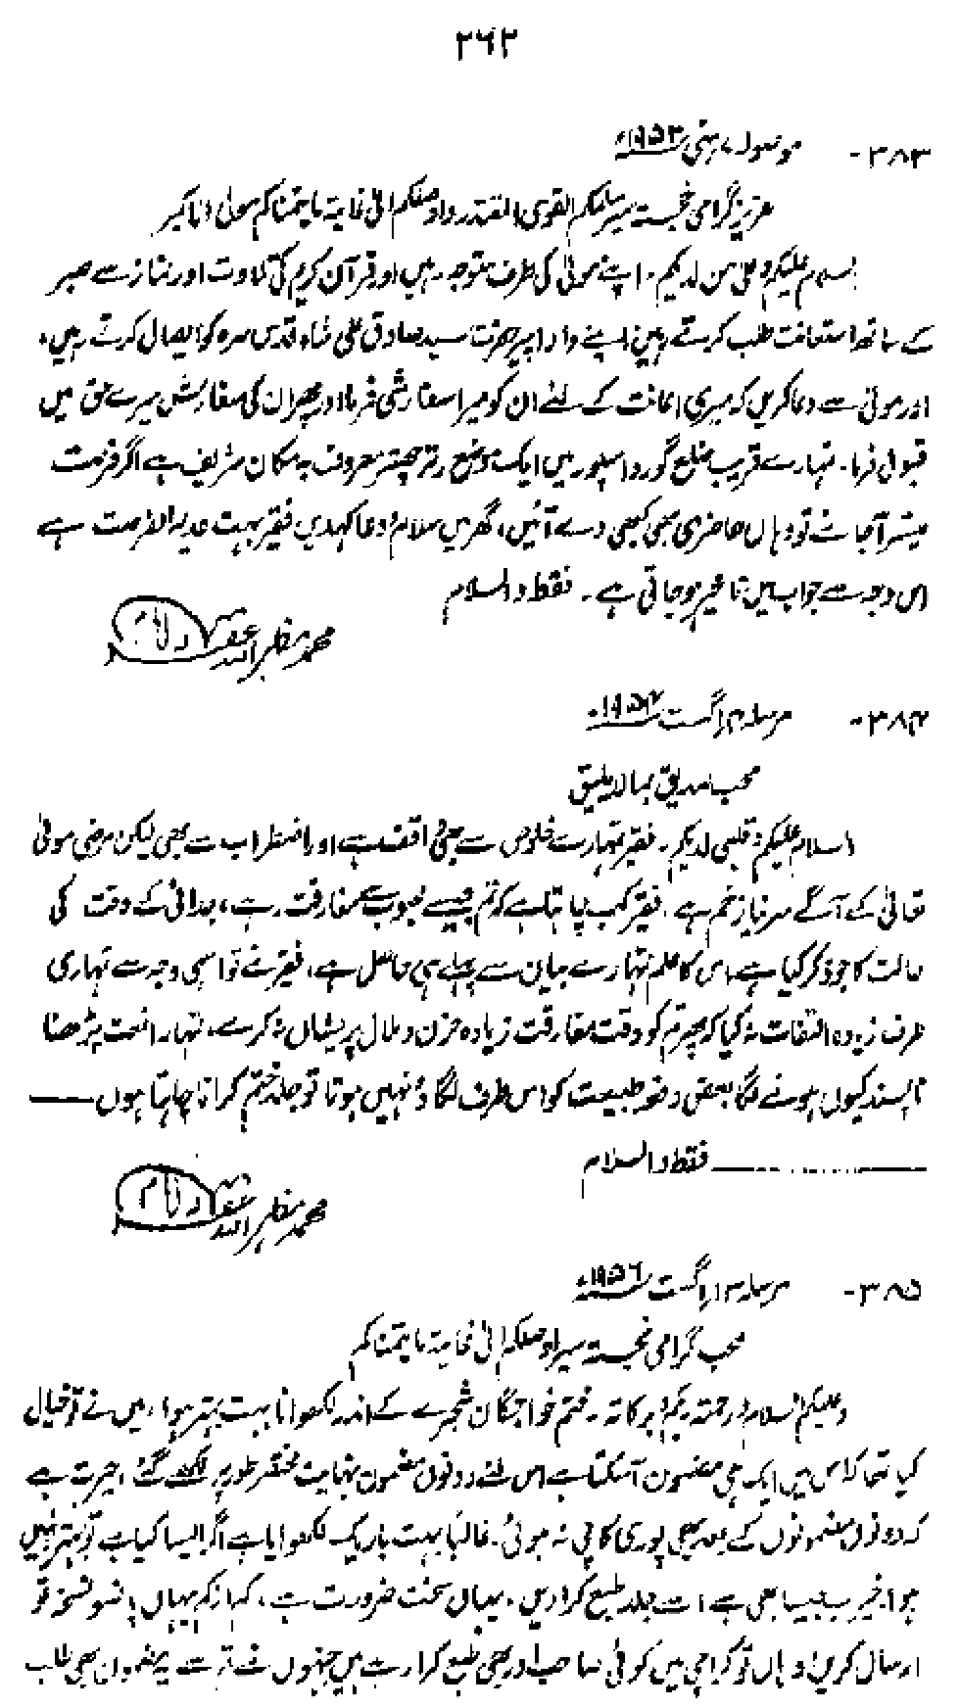 ۲۶۲
۳۸۳- موصولہ مئی ۱۹۵۳ء
عزیز گرامی خجستہ سیر سلمکم القوی المقتدر واوصلکم الیٰ غایۃ ما یتمناکم
السلام علیکم وعلیٰ من لدیکم۔ اپنے مولیٰ کی طرف متوجہ رہیں اور قرآن کریم کی تلاوت اور نماز سے صبر
کے ساتھ استعانت طلب کرتے رہیں، اپنے دادا پیر حضرت سید صادق علی شاہ قدس سرہ کو ایصال کرتے رہیں۔
اور مولیٰ سے دعا کریں کہ میری اعانت کے لئے ان کو میرا سفارشی فرما اور پھر ان کی سفارش میرے حق میں
قبول فرما۔ تمہارے قریب ضلع گورداسپور میں ایک موضع رتر چھتر معروف بہ مکان شریف ہے اگر فرصت
میسر آجائے تو وہاں حاضری بھی کبھی دے آئیں، گھر میں سلام و دعا کہدیں فقیر بہت عدیم الفرصت ہے
اس وجہ سے جواب میں تاخیر ہو جاتی ہے۔ فقط والسلام
محمد مظہر اللہ غفرلہ
۳۸۴- مرسلہ ۳ اگست ۱۹۵۴ء
محب صدیق بمالایلیق
السلام علیکم وقلبی لدیکم۔ فقیر تمہارے خلوص سے بھی واقف ہے اور اضطراب سے بھی لیکن مرضی مولیٰ
تعالیٰ کے آگے سر نیاز خم ہے۔ فقیر کب چاہتا ہے کہ تم جیسے محبوب سے مفارقت رہے، جدائی کے وقت کی
حالت کا جو ذکر کیا ہے اس کا علم تمہارے بیان سے پہلے ہی حاصل ہے، فقیر نے تو اسی وجہ سے تمہاری
طرف زیادہ التفات نہ کیا کہ پھر تم کو وقت مفارقت زیادہ حزن و ملال پریشاں نہ کرے، تمہارا نعت پڑھنا
ناپسند کیوں ہونے لگا بعض دفعہ طبیعت کو اس طرف لگاؤ نہیں ہوتا تو جلد ختم کرانا چاہتا ہوں
فقط والسلام
محمد مظہر اللہ غفرلہ
۳۸۵- مرسلہ ۱۳ اگست ۱۹۵۶ء
محب گرامی خجستہ سیر اوصلکم الیٰ غایۃ ما یتمناکم
وعلیکم السلام ورحمتہ وبرکاتہ۔ ختم خواجگان شجرے کے اندر لکھوانا بہت بہتر ہوا، میں نے تو خیال
کیا تھا کہ اس میں ایک ہی مضمون آ سکتا ہے اس لئے دونوں مضمون نہایت مختصر طور پر لکھے گئے، حیرت ہے
کہ دونوں مضمونوں کے بعد بھی پوری کاپی نہ ہوئی۔ غالباً بہت باریک لکھوایا ہے اگر ایسا کیا ہے تو بہتر نہیں
ہوا خیر جیسا بھی ہے اسے جلد طبع کرا دیں۔ یہاں سخت ضرورت ہے، کم از کم یہاں پانسو نسخہ تو
ارسال کریں، وہاں تو کراچی میں کوئی صاحب اور بھی طبع کرا رہے ہیں جنہوں نے تم سے یہ مضمون بھی طلب